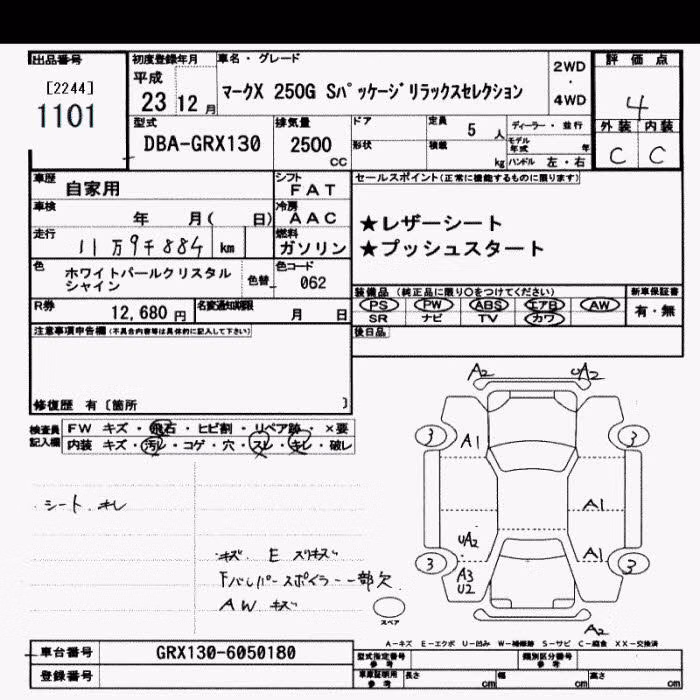 出品番号
[2244]
1101
初度登録年月
平成
23 12 月
車名・グレード
マークX 250G Sパッケージリラックスセレクション
2WD
・
4WD
評 価 点
4
外装 内装
C C
型式
DBA-GRX130
排気量
2500
cc
ドア
形状
定員 5 人
積載 kg
ディーラー・並行
モデル年式 年
ハンドル 左・右
車歴
自家用
シフト
FAT
車検
年 月( 日)
冷房
AAC
走行
11万9千884 km
燃料
ガソリン
色
ホワイトパールクリスタル
シャイン
色替
色コード
062
R券
12,680 円
名変通知期限
月 日
セールスポイント(正常に機能するものに限ります)
★レザーシート
★プッシュスタート
装備品 (純正品に限り○をつけてください)
PS PW ABS エアB AW
SR ナビ TV カワ
新車保証書
有・無
後日品
注意事項申告欄(不具合内容等は具体的に記入して下さい)
修復歴 有〔箇所 〕
検査員
記入欄
FW キズ・飛石・ヒビ割・リペア跡・×要
内装 キズ・汚レ・コゲ・穴・スレ・キレ・破レ
シート キレ
キズ E スリキズ
Fバンパースポイラー一部欠
AW キズ
A2 UA2
3 3
A1
A1
UA2 A1
3 3
A3
U2
A2
スペア
A-キズ E-エクボ U-凹み W-補修跡 S-サビ C-腐食 XX-交換済
車台番号
GRX130-6050180
登録番号
型式指定番号
参考
類別区分番号
参考
車庫証明用
参考
長さ cm
幅 cm
高さ cm